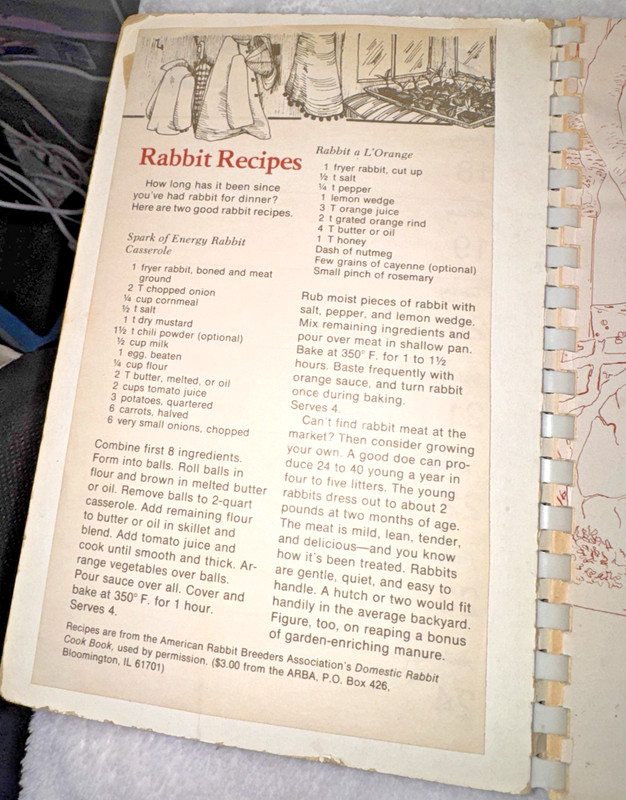 Rabbit Recipes
How long has it been since
you've had rabbit for dinner?
Here are two good rabbit recipes.
Spark of Energy Rabbit
Casserole
1 fryer rabbit, boned and meat
ground
2 T chopped onion
¼ cup cornmeal
½ t salt
1 t dry mustard
1½ t chili powder (optional)
½ cup milk
1 egg, beaten
¼ cup flour
2 T butter, melted, or oil
2 cups tomato juice
3 potatoes, quartered
6 carrots, halved
6 very small onions, chopped
Combine first 8 ingredients.
Form into balls. Roll balls in
flour and brown in melted butter
or oil. Remove balls to 2-quart
casserole. Add remaining flour
to butter or oil in skillet and
blend. Add tomato juice and
cook until smooth and thick. Ar-
range vegetables over balls.
Pour sauce over all. Cover and
bake at 350° F. for 1 hour.
Serves 4.
Rabbit a L'Orange
1 fryer rabbit, cut up
½ t salt
¼ t pepper
1 lemon wedge
3 T orange juice
2 t grated orange rind
4 T butter or oil
1 T honey
Dash of nutmeg
Few grains of cayenne (optional)
Small pinch of rosemary
Rub moist pieces of rabbit with
salt, pepper, and lemon wedge.
Mix remaining ingredients and
pour over meat in shallow pan.
Bake at 350° F. for 1 to 1½
hours. Baste frequently with
orange sauce, and turn rabbit
once during baking.
Serves 4.
Can't find rabbit meat at the
market? Then consider growing
your own. A good doe can pro-
duce 24 to 40 young a year in
four to five litters. The young
rabbits dress out to about 2
pounds at two months of age.
The meat is mild, lean, tender,
and delicious—and you know
how it's been treated. Rabbits
are gentle, quiet, and easy to
handle. A hutch or two would fit
handily in the average backyard.
Figure, too, on reaping a bonus
of garden-enriching manure.
Recipes are from the American Rabbit Breeders Association's Domestic Rabbit
Cook Book, used by permission. ($3.00 from the ARBA, P.O. Box 426,
Bloomington, IL 61701)